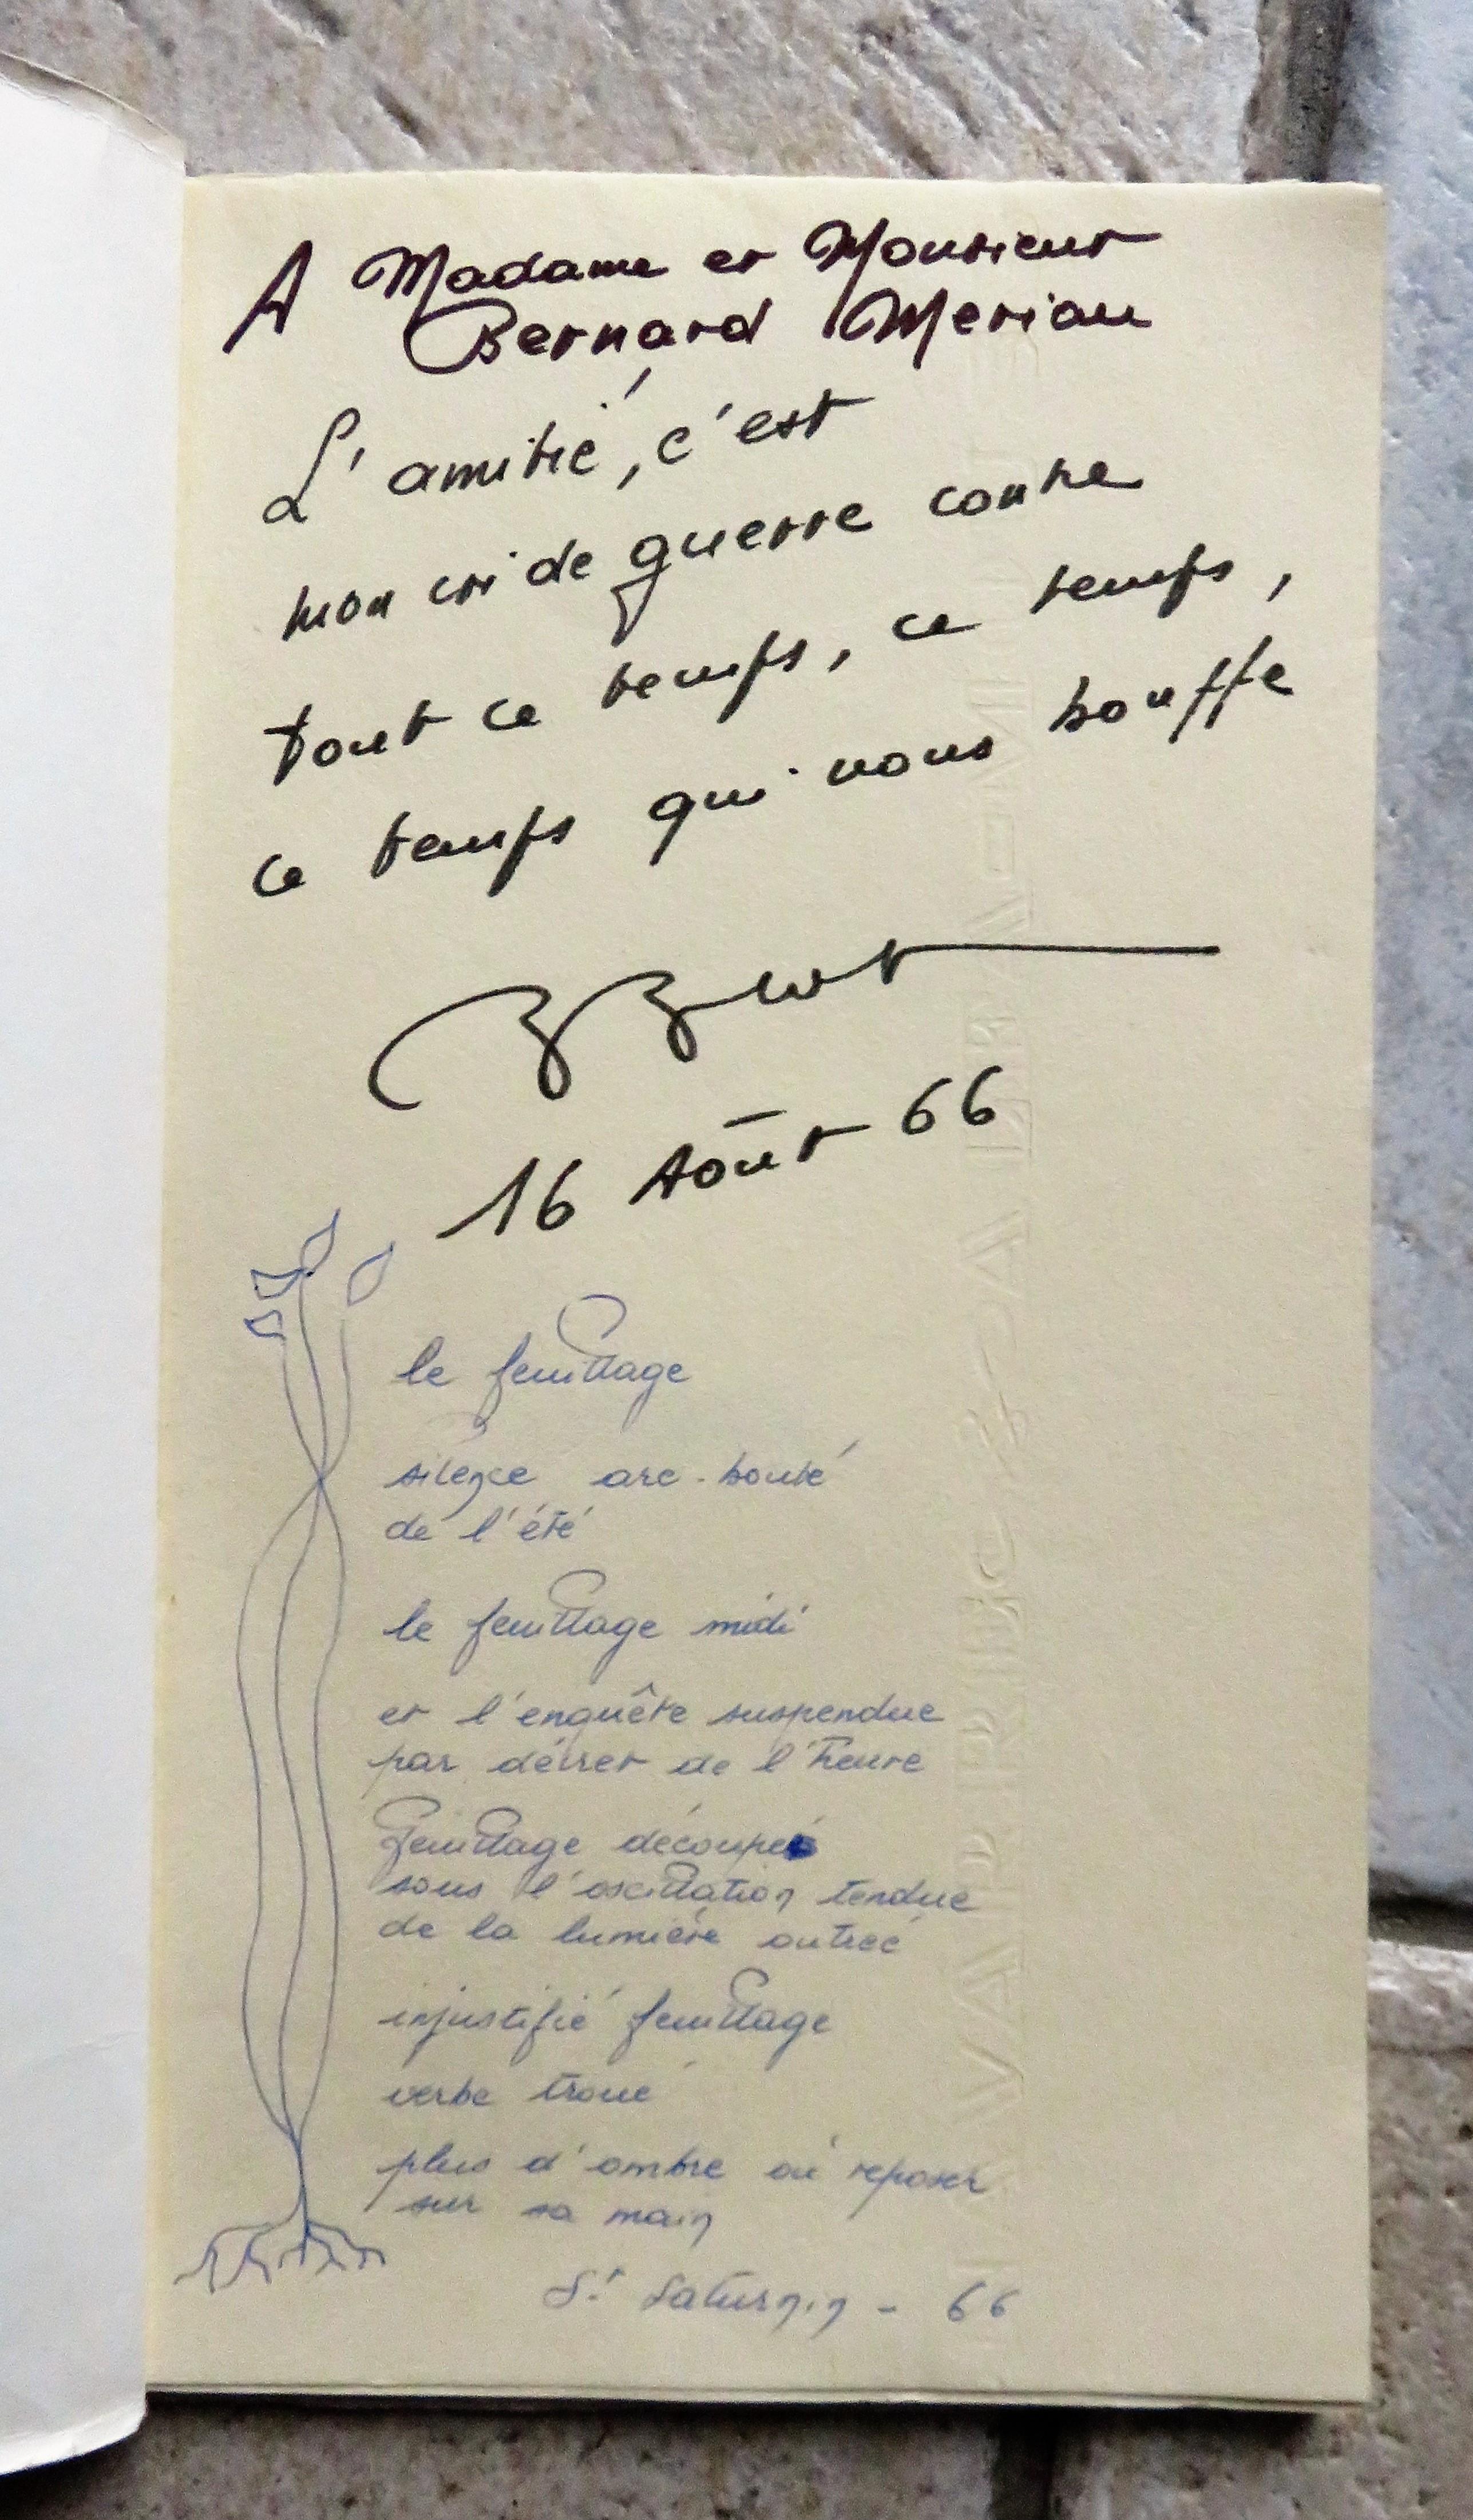 A Madame et Monsieur
Bernard Meriau
L'amitié, c'est
mon cri de guerre contre
tout ce temps, ce temps,
ce temps qui nous bouffe
16 Août 66
le feuillage
silence arc-bouté
de l'été
le feuillage midi
et l'enquête suspendue
par décret de l'heure
feuillage découpé
sous l'oscillation tendue
de la lumière outrée
injustifié feuillage
verbe troué
plus d'ombre où reposer
sur sa main
St Saturnin - 66